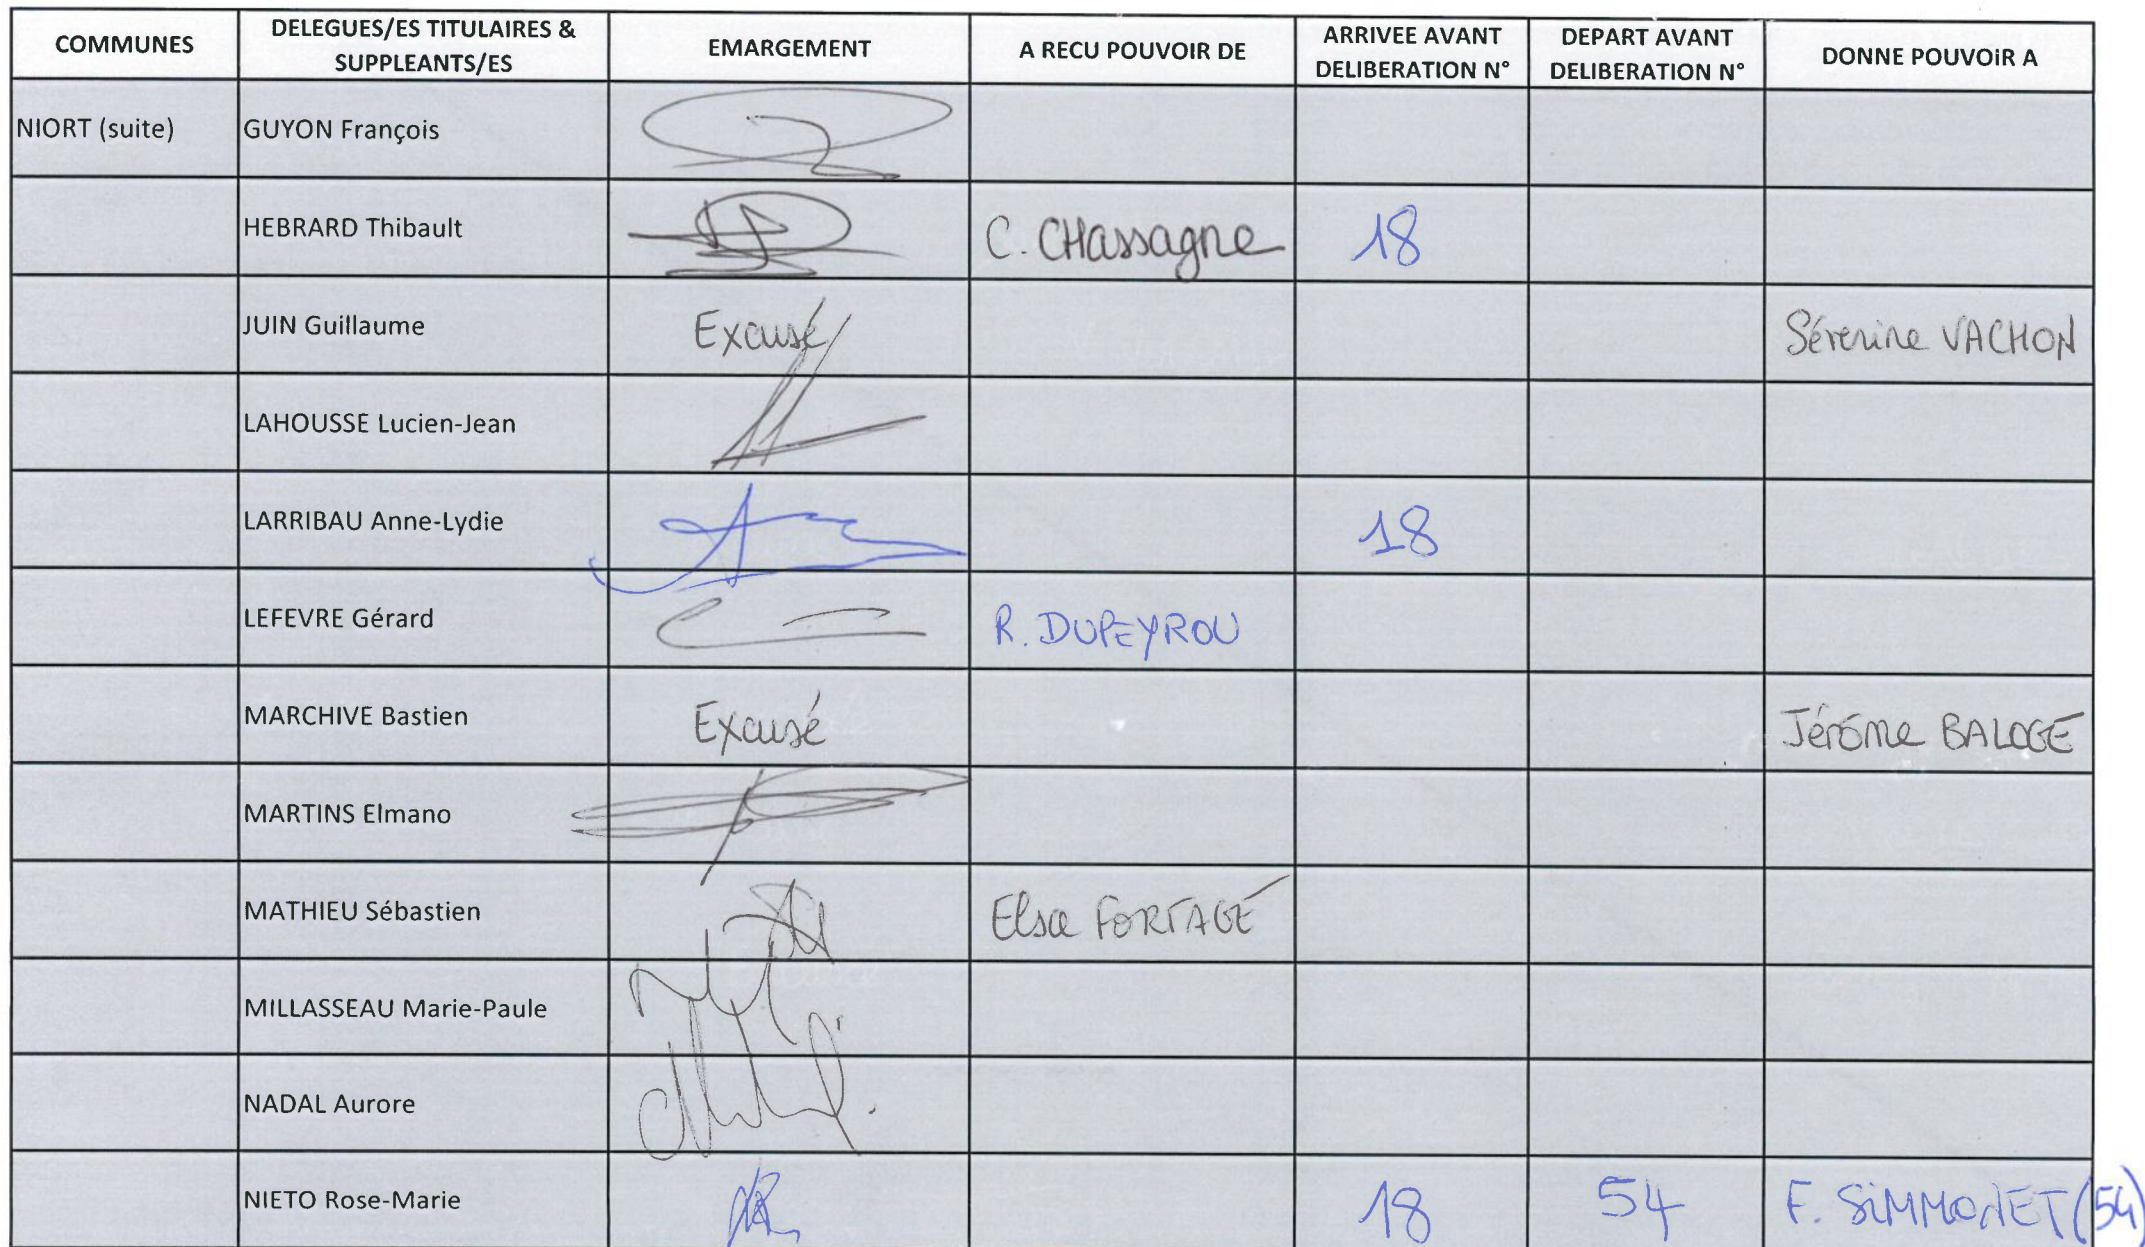 COMMUNES DELEGUES/ES TITULAIRES & SUPPLEANTS/ES EMARGEMENT A RECU POUVOIR DE ARRIVEE AVANT DELIBERATION N° DEPART AVANT DELIBERATION N° DONNE POUVOIR A
NIORT (suite) GUYON François
HEBRARD Thibault C. CHassagne 18
JUIN Guillaume Excusé Séverine VACHON
LAHOUSSE Lucien-Jean
LARRIBAU Anne-Lydie 18
LEFEVRE Gérard R. DUPEYROU
MARCHIVE Bastien Excusé Jérôme BALOGE
MARTINS Elmano
MATHIEU Sébastien Elsa FORTAGE
MILLASSEAU Marie-Paule
NADAL Aurore
NIETO Rose-Marie 18 54 F. SIMMONET (54)